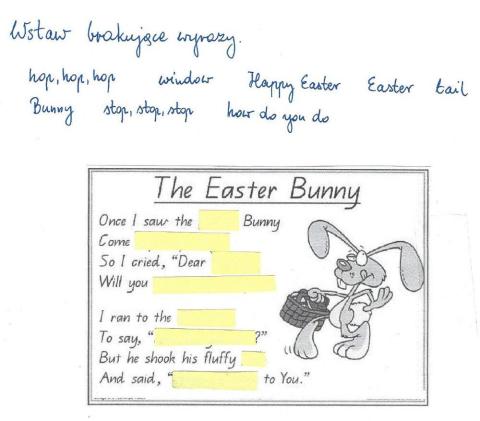 Wstaw brakujące wyrazy.
hop, hop, hop window Happy Easter Easter tail
Bunny stop, stop, stop how do you do
The Easter Bunny
Once I saw the Bunny
Come
So I cried, "Dear
Will you
I ran to the
To say, " ?"
But he shook his fluffy
And said, " to You."